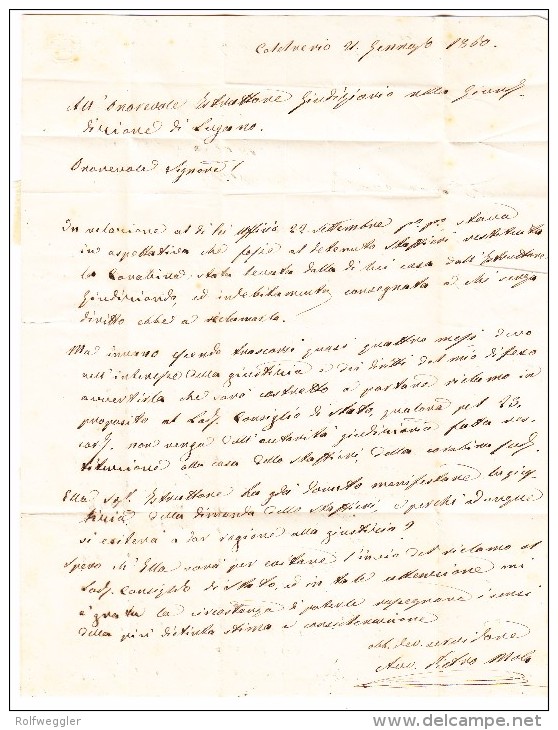 Coldrerio 21. Gennajo 1860.
All' Onorevole Istruttore Giudiziario nella Giuris
dizione di Lugano.
Onorevole Signore!
In relazione al di lei uffizio 22 settembre p.º p.º stava
in aspettativa che fosse al detenuto restituita
la Carabina stata levata dalla di lui casa dall' Istruttore
Giudiziario, ed indebitamente consegnata a chi senza
diritto ebbe a reclamarla.
Ma invano essendo trascorsi quasi quattro mesi devo
nell' interesse della giustizia e dei diritti del mio difeso
avvertirla che sarò costretto a portare reclamo in
proposito al Lod. Consiglio di Stato, qualora pel 23.
corr. non venga dall' autorità giudiziaria fatta res
tituzione alla casa dello della carabina sudd.
Ella Sig. Istruttore ha già dovuto manifestare la gius
tizia della dimanda dello e perchè adunque
si esiterà a dar ragione alla giustizia?
Spero ch' Ella sarà per evitare l'invio del reclamo al
Lod. Consiglio di Stato, ed in tale attenzione mi
è grata la circostanza di poterle rassegnare i sensi
della più distinta stima e considerazione
obb. dev. servidore
Avv. Pietro Mola
Rolfweggler
www.delcampe.net